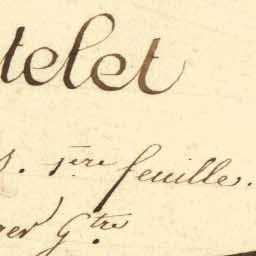 telet
s. 1.ère feuille.
er G.tre